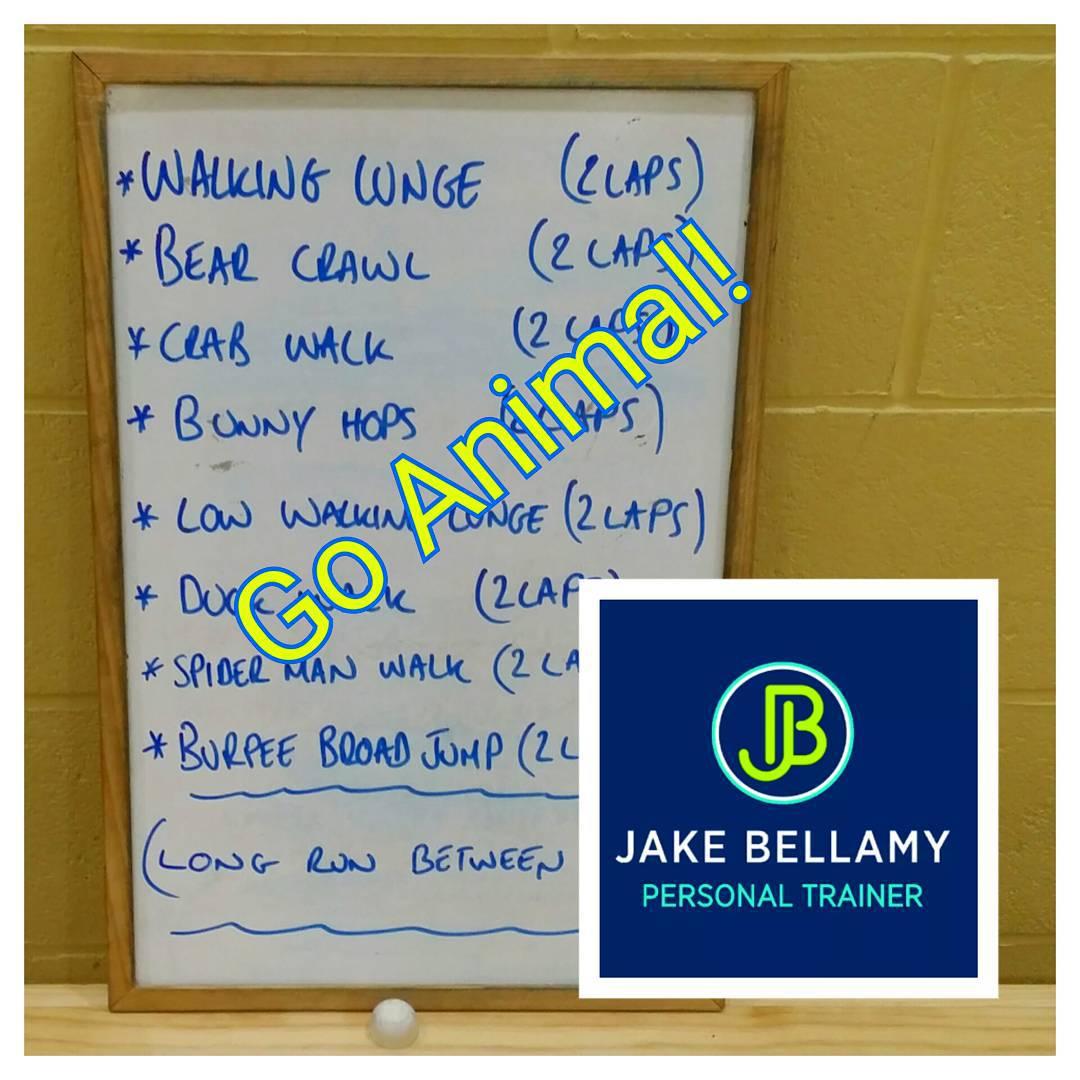 * WALKING LUNGE (2 LAPS)
* BEAR CRAWL (2 LAPS)
* CRAB WALK (2 LAPS)
* BUNNY HOPS (2 LAPS)
* LOW WALKING LUNGE (2 LAPS)
* DUCK WALK (2 LAPS
* SPIDER MAN WALK (2 LA
* BURPEE BROAD JUMP (2 L
(LONG RUN BETWEEN
Go Animal!
JB
JAKE BELLAMY
PERSONAL TRAINER